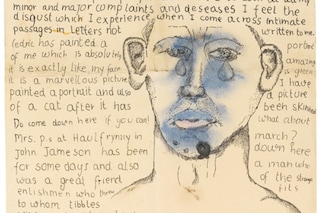 minor and major complaints and deseases I feel the
disgust which I experience when I come across intimate
passages in Letters not written to me.
Cedric has painted a portrait
of me which is absolutely amazing
it is exactly like, my face is green
is a marvellous picture I have
painted a portrait and also a picture
of a cat after it has been skinned
Do come down here if you can! what about
Mrs. p.s at Haulfryn march?
John Jameson has been down here
for some days and also a
was a great friend of the strange
enlishmen who fits
to whom tibbles